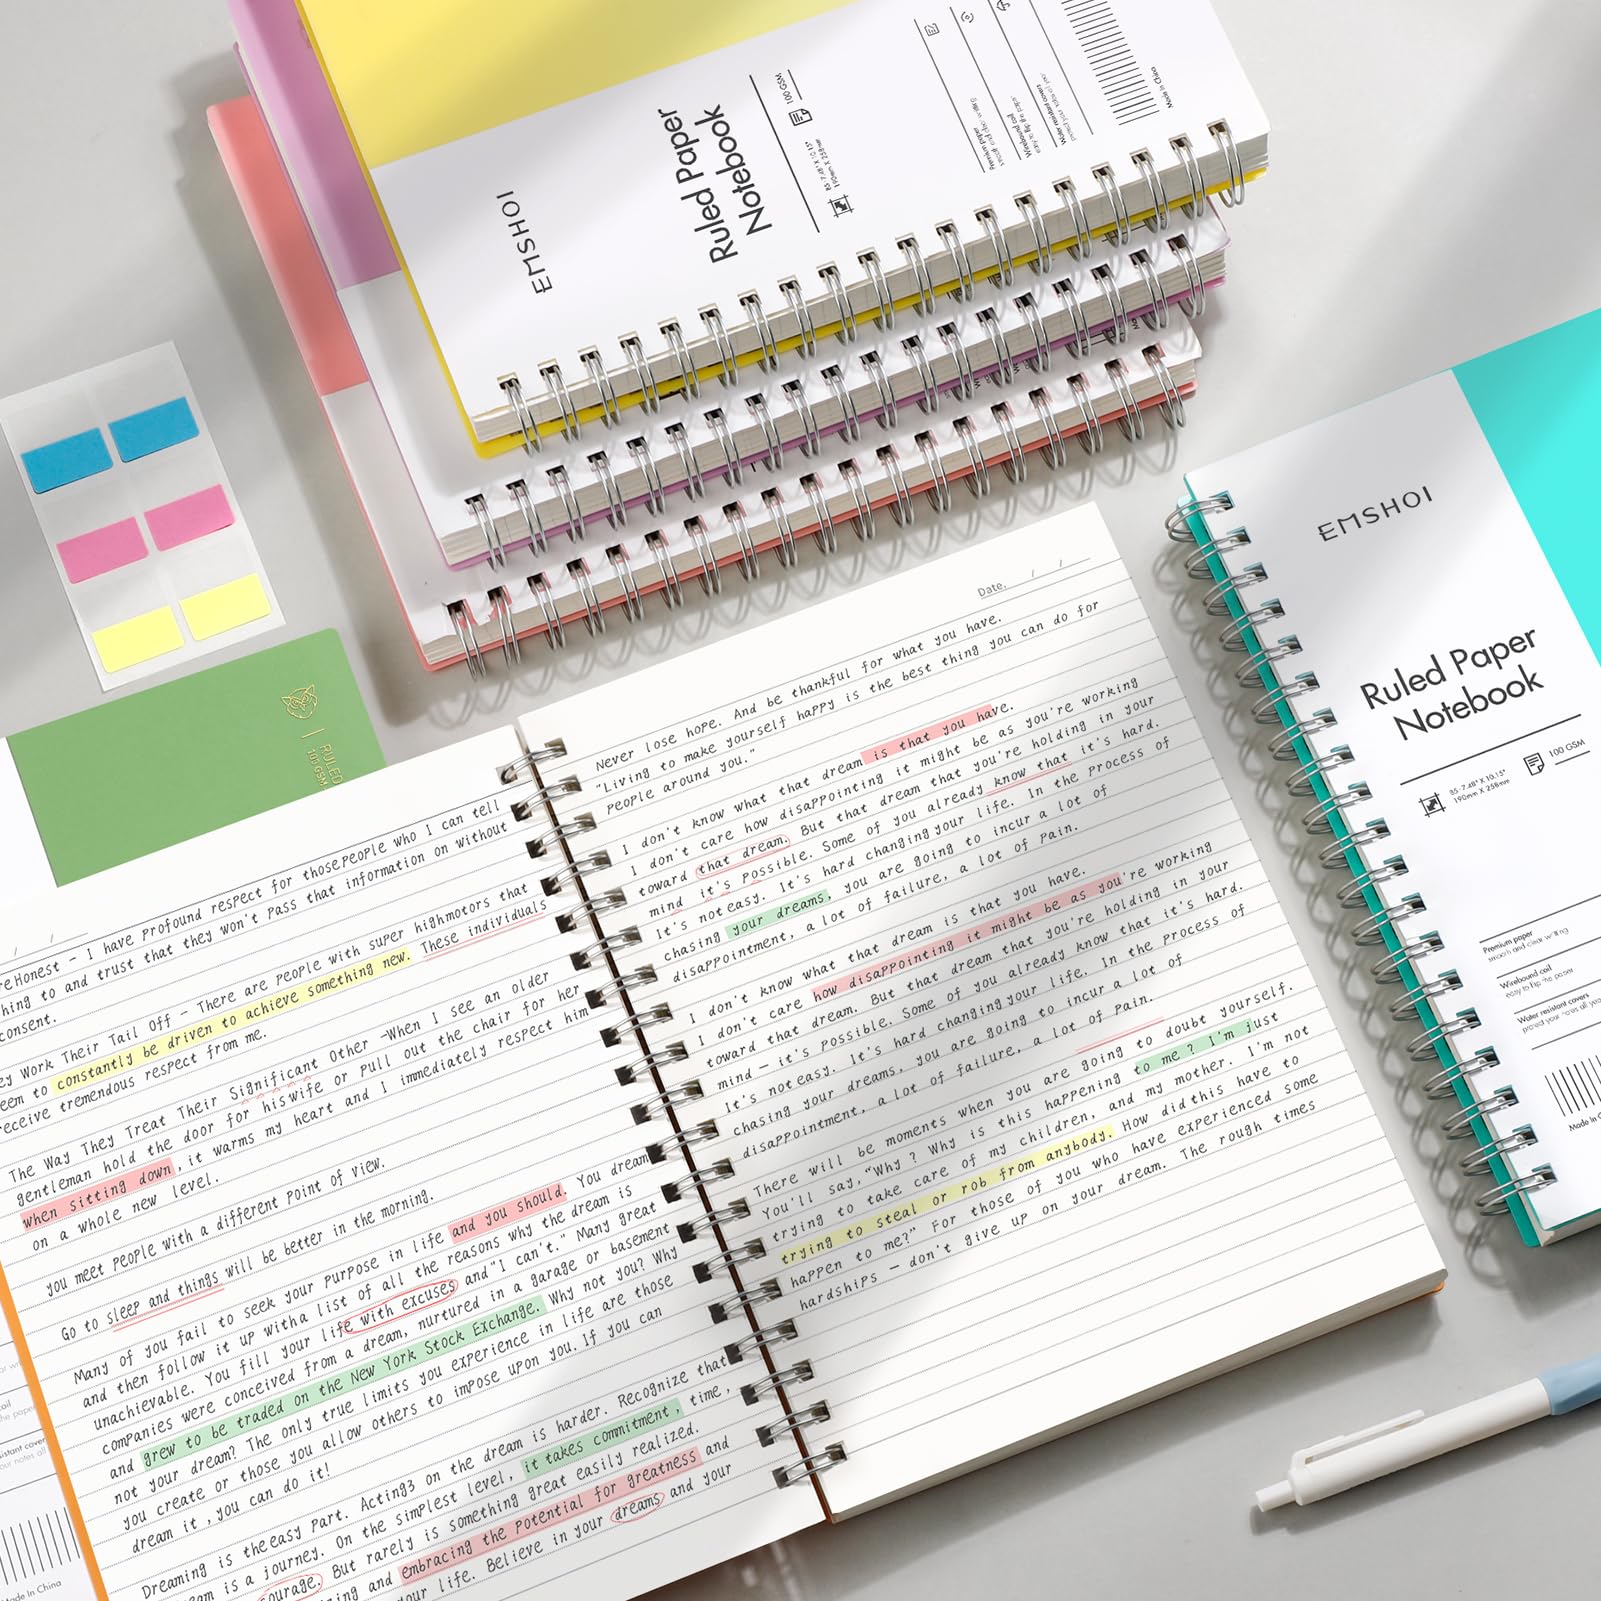 EMSHOI
Ruled Paper
Notebook
B5 7.48" X 10.15"
190mm X 258mm
100 GSM
Premium paper
Wirebound coil
Water resistant covers
Made in China
EMSHOI
Ruled Paper
Notebook
B5 7.48" X 10.15"
190mm X 258mm
100 GSM
Premium paper
smooth and clear writing
Wirebound coil
easy to flip the paper
Water resistant covers
Made in
RULED
100 GSM
Honest - I have profound respect for those people who I can tell
hing to and trust that they won't pass that information on without
consent.
Work Their Tail Off - There are people with super highmotors that
eem to constantly be driven to achieve something new. These individuals
receive tremendous respect from me.
The Way They Treat Their Significant Other -When I see an older
gentleman hold the door for his wife or pull out the chair for her
when sitting down, it warms my heart and I immediately respect him
on a whole new level.
you meet people with a different point of view.
Go to sleep and things will be better in the morning.
Many of you fail to seek your purpose in life and you should. You dream
and then follow it up with a list of all the reasons why the dream is
unachievable. You fill your life with excuses and "I can't." Many great
companies were conceived from a dream, nurtured in a garage or basement
and grew to be traded on the New York Stock Exchange. Why not you? Why
not your dream? The only true limits you experience in life are those
you create or those you allow others to impose upon you. If you can
dream it, you can do it!
Dreaming is the easy part. Acting3 on the dream is harder. Recognize that
eam is a journey. On the simplest level, it takes commitment, time,
ourage. But rarely is something great easily realized.
zing and embracing the potential for greatness and
our life. Believe in your dreams and your
Date. / /
Never lose hope. And be thankful for what you have.
"Living to make yourself happy is the best thing you can do for
people around you."
I don't know what that dream is that you have.
I don't care how disappointing it might be as you're working
toward that dream. But that dream that you're holding in your
mind it's possible. Some of you already know that it's hard.
It's not easy. It's hard changing your life. In the process of
chasing your dreams, you are going to incur a lot of
disappointment, a lot of failure, a lot of pain.
I don't know what that dream is that you have.
I don't care how disappointing it might be as you're working
toward that dream. But that dream that you're holding in your
mind - it's possible. Some of you already know that it's hard.
It's not easy. It's hard changing your life. In the process of
chasing your dreams, you are going to incur a lot of
disappointment, a lot of failure, a lot of pain.
There will be moments when you are going to doubt yourself.
You'll say, "Why? Why is this happening to me? I'm just
trying to take care of my children, and my mother. I'm not
trying to steal or rob from anybody. How did this have to
happen to me?" For those of you who have experienced some
hardships - don't give up on your dream. The rough times
Made In China